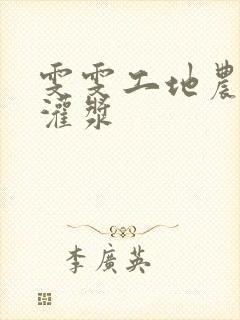 雯雯工地農
灌漿
李廣英